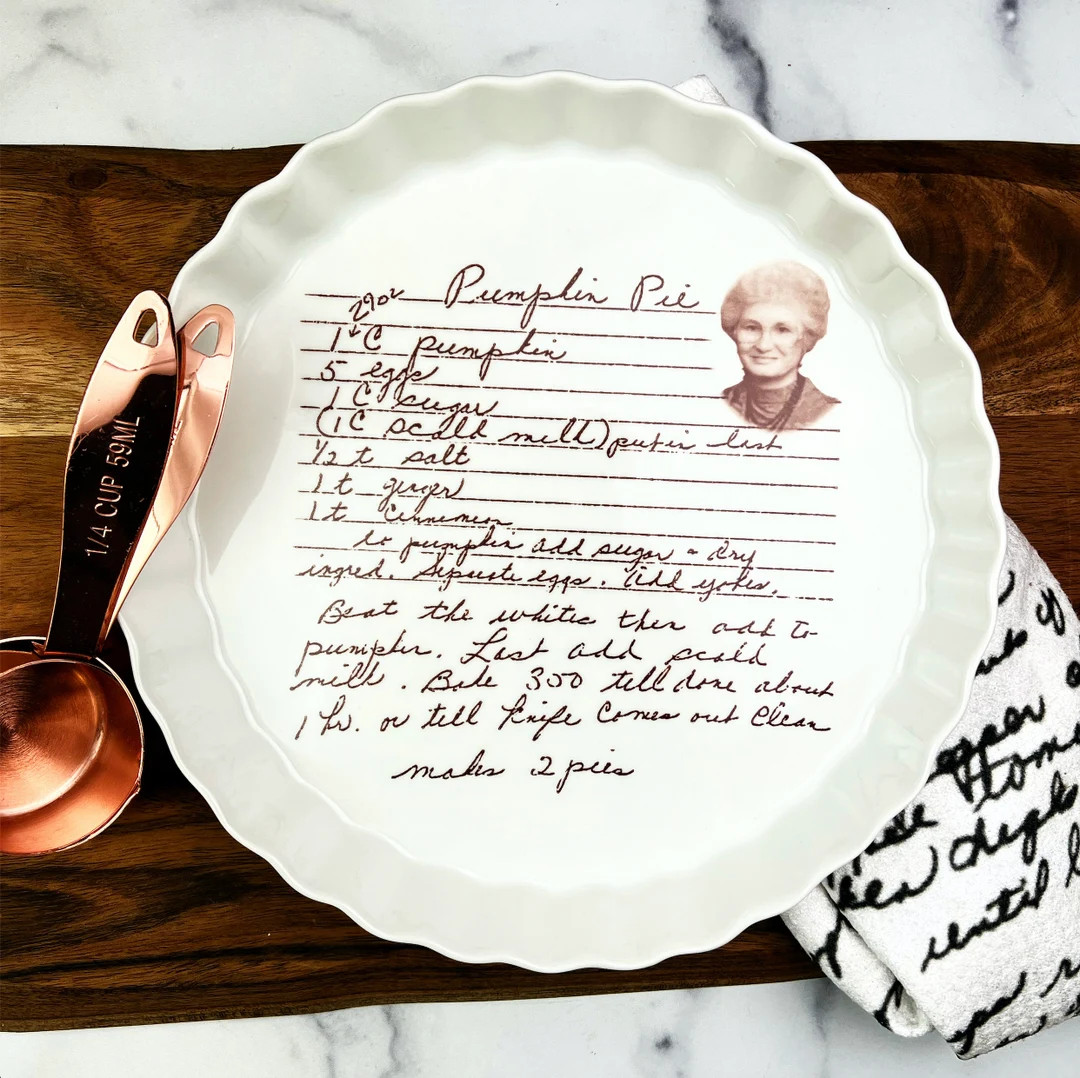 Pumpkin Pie
29oz
1 C pumpkin
5 eggs
1 C sugar
(1C scald milk) put in last
1/2 t salt
1 t ginger
1 t Cinnemon
to pumpkin add sugar - dry
ingred. Seperate eggs. Add yokes.
Beat the whites then add to
pumpkin. Last add scald
milk. Bake 350 till done about
1 hr. or till knife Comes out Clean
makes 2 pies
1/4 CUP 59ML
until